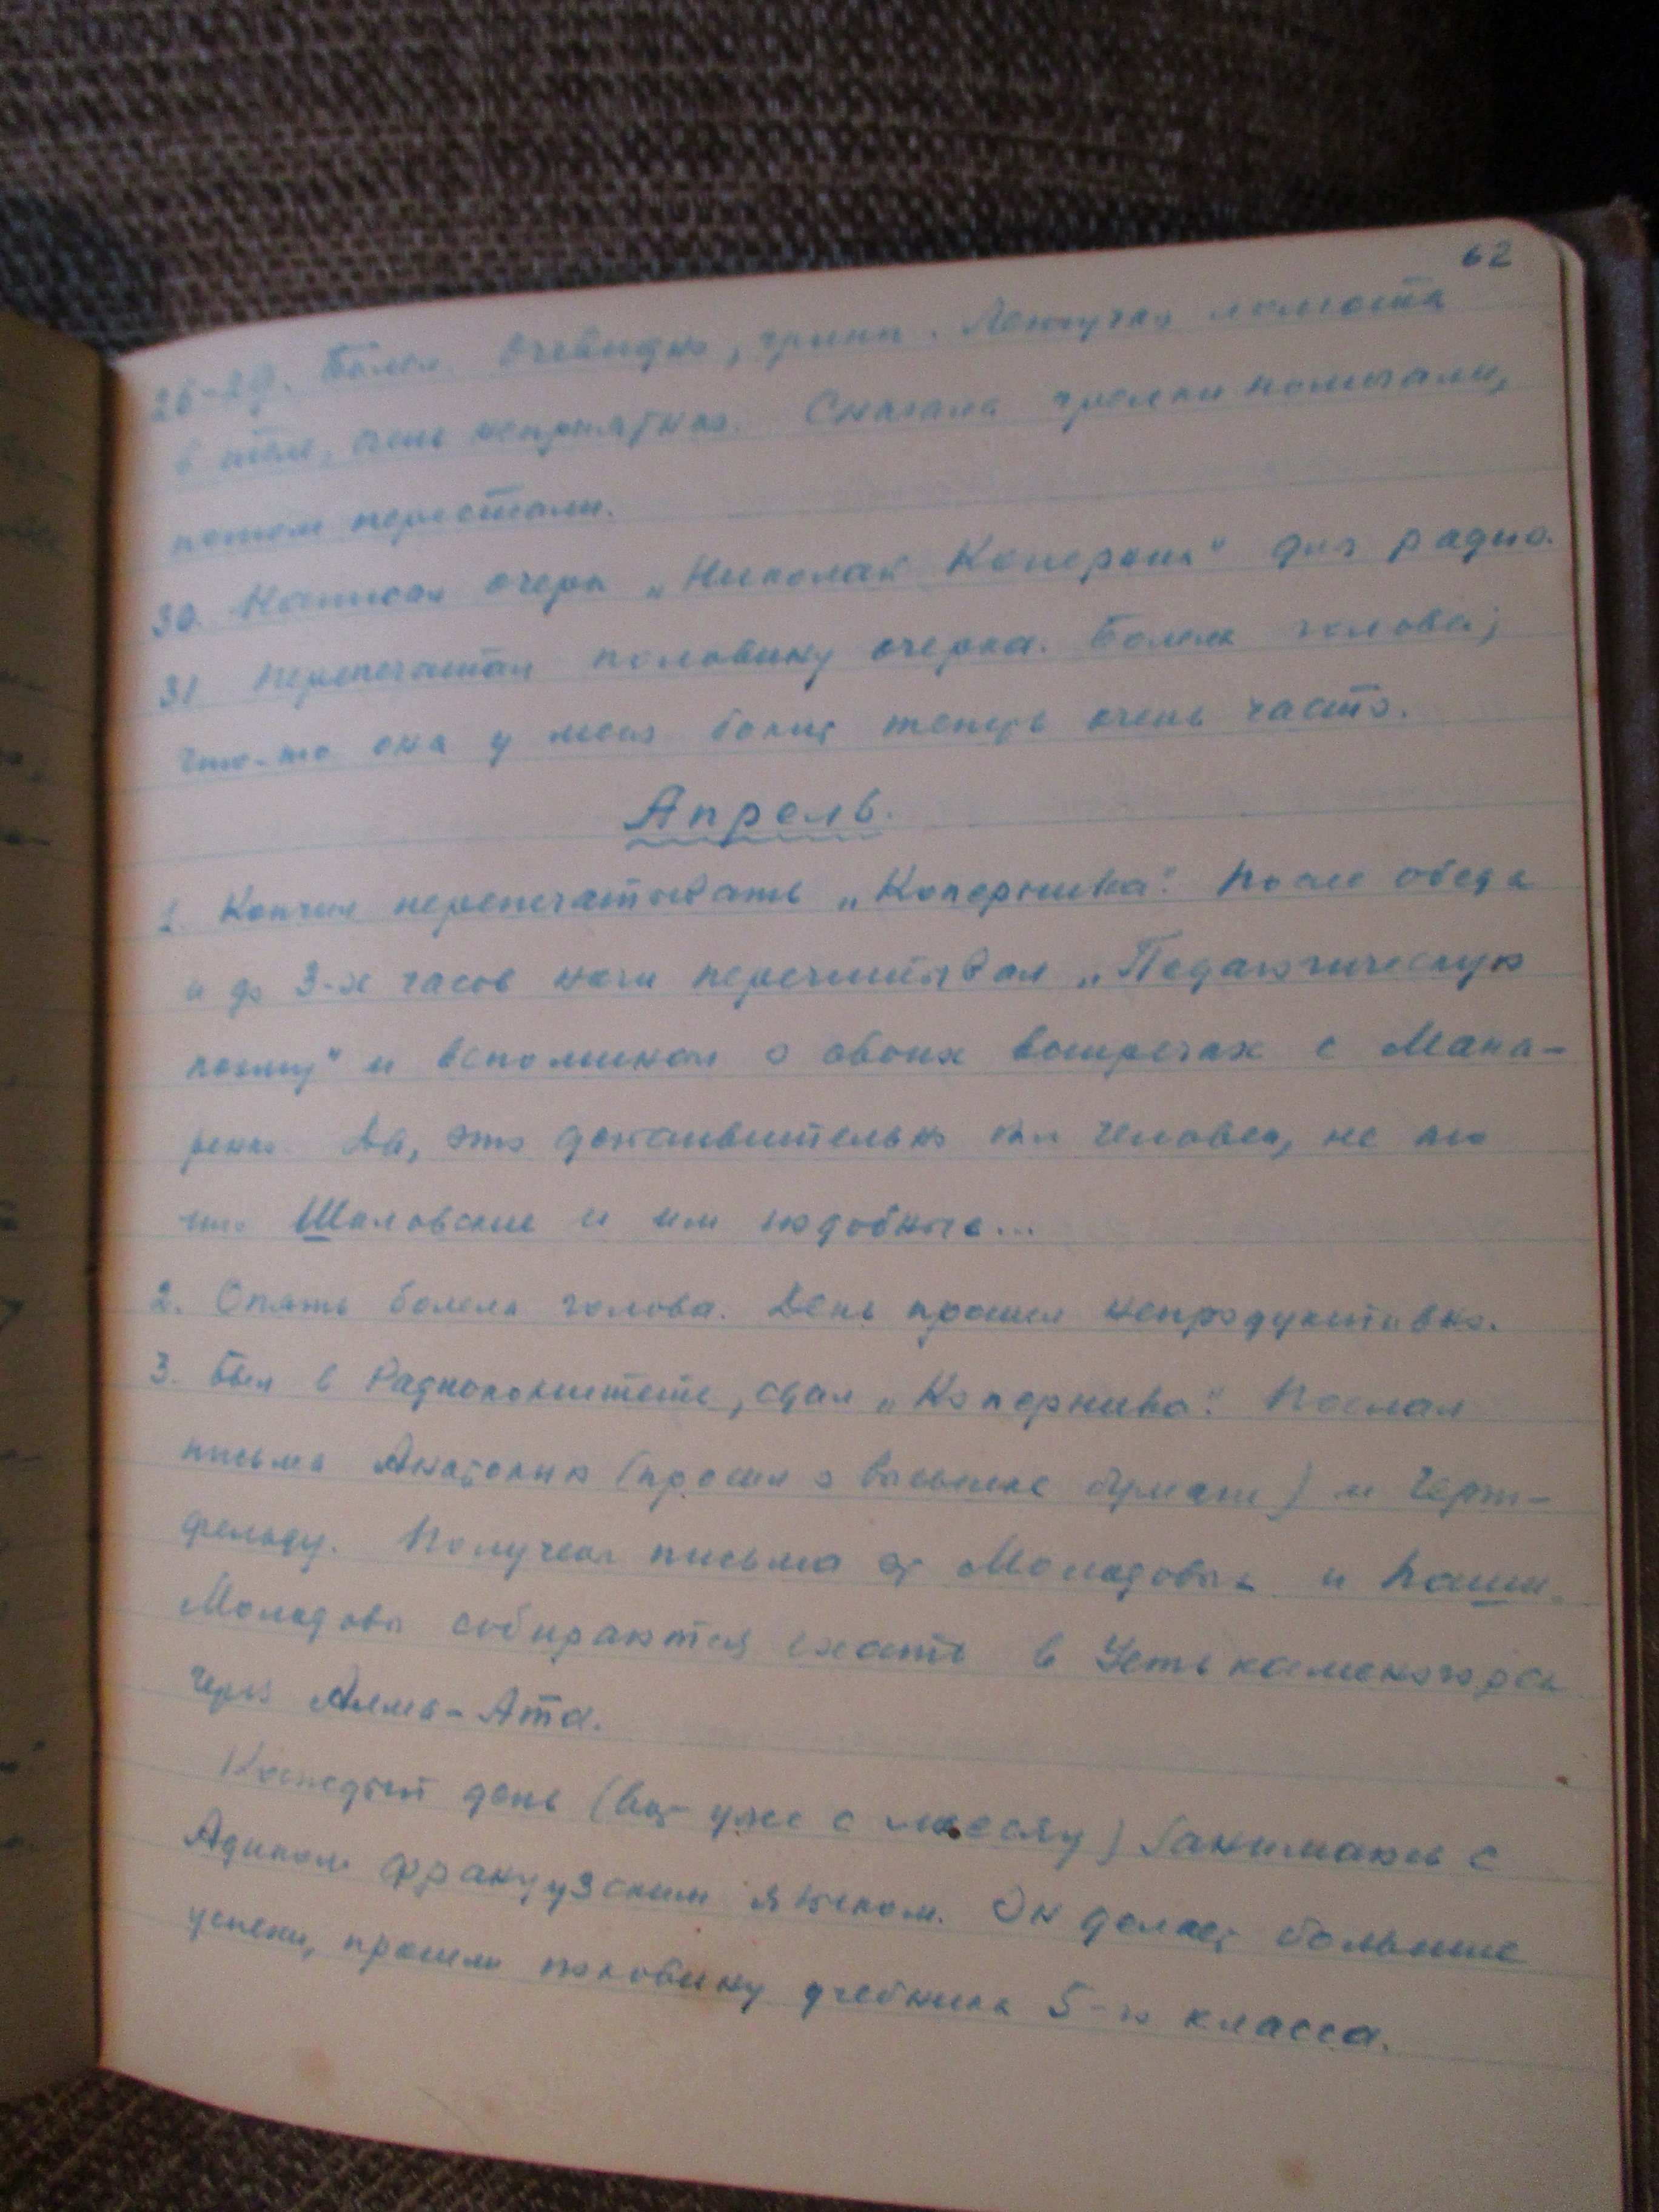 62
26-29. Болел. Очевидно, грипп. Летучая ломота
в теле, очень неприятная. Сначала грелки помогали,
потом перестали.
30. Написал очерк „Николай Коперник" для радио.
31 Перепечатал половину очерка. Болела голова;
что-то она у меня болит теперь очень часто.
Апрель.
1. Кончил перепечатывать „Коперника". После обеда
и до 3-х часов ночи перечитывал „Педагогическую
поэму" и вспоминал о своих встречах с Мака-
ренко. Да, это действительно был человек, не то
что Шаховские и им подобные...
2. Опять болела голова. День прошел непродуктивно.
3. Был в Радиокомитете, сдал „Коперника". Послал
письма Анатолию (просил о высылке бумаги) и Герш-
фельду. Получены письма от Молодовых и
Молодовы собираются ехать в Усть каменогорск
через Алма-Ата.
Каждый день (вот уже с месяц) занимаюсь с
Адиком французским языком. Он делает большие
успехи, прошли половину учебника 5-го класса.